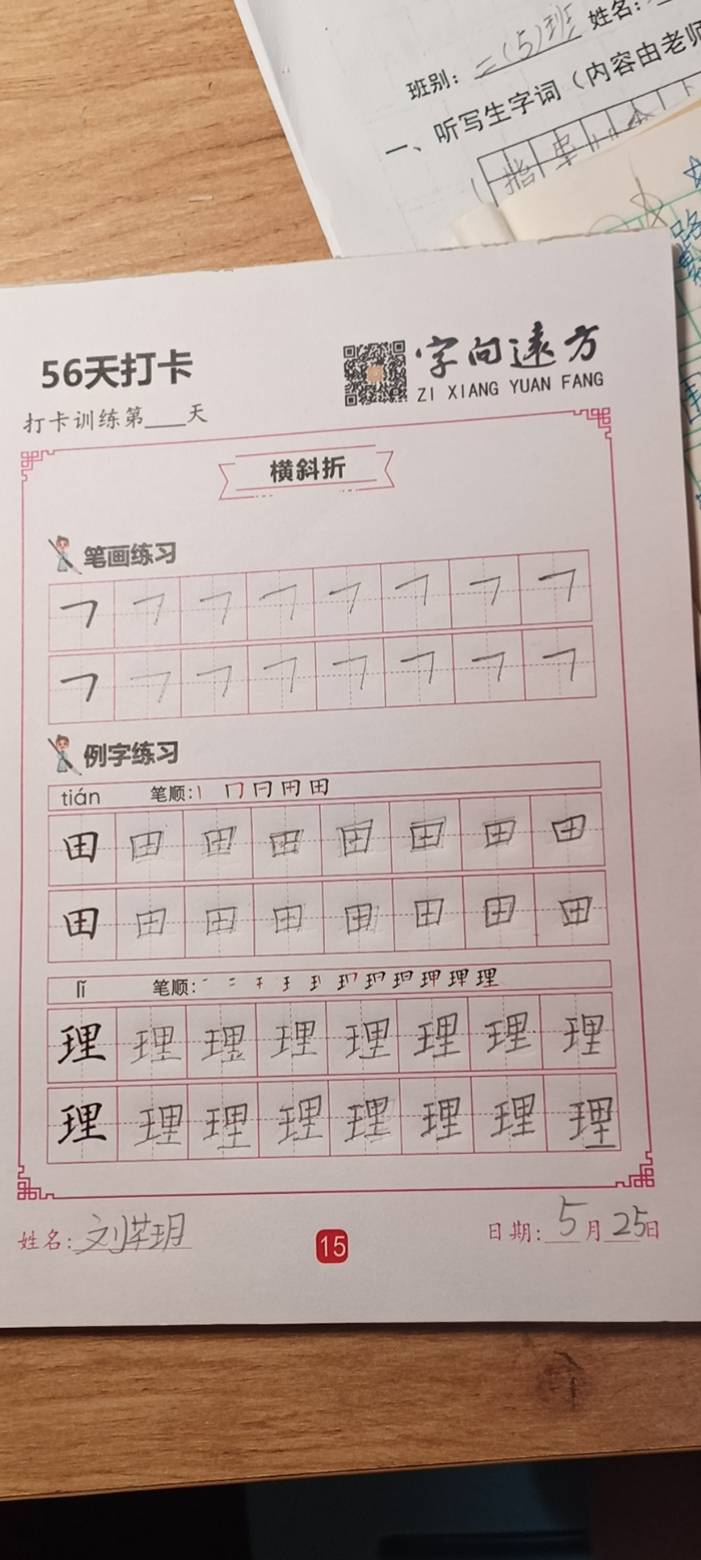 班别：二（5）班 姓名：
一、听写生字词（内容由老师
56天打卡
字向远方
ZI XIANG YUAN FANG
打卡训练第____天
横斜折
笔画练习
例字练习
tián 笔顺：
田 田 田 田 田 田 田 田
田 田 田 田 田 田 田 田
lǐ 笔顺：
理 理 理 理 理 理 理 理
理 理 理 理 理 理 理 理
姓名：刘苹玥
15
日期：5月25日